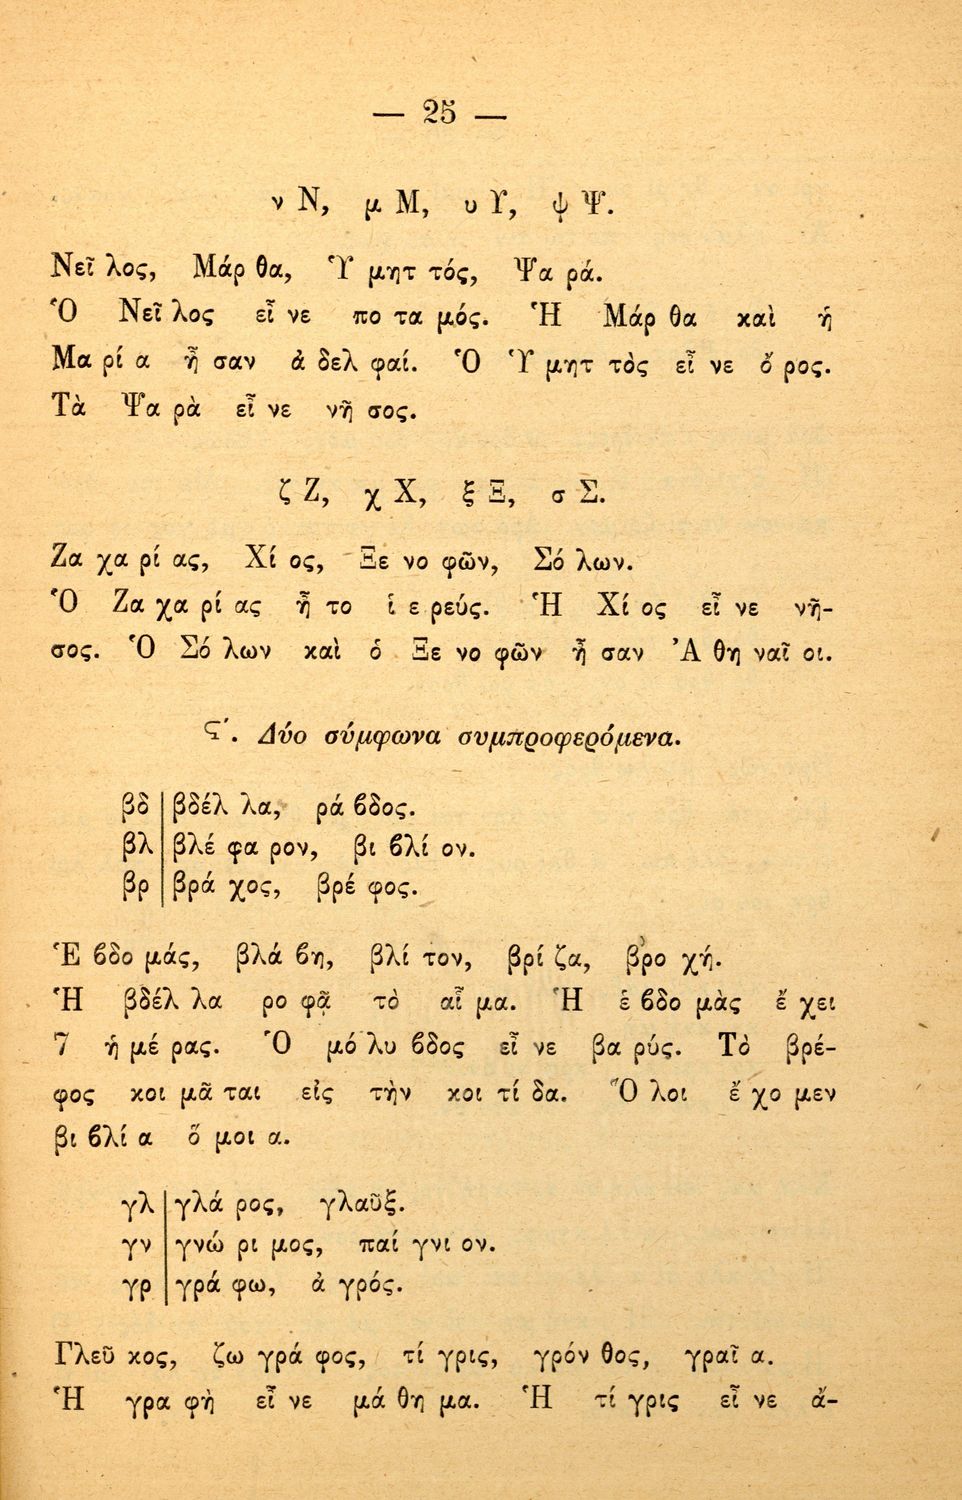 — 25 —
ν Ν, μ Μ, υ Υ, ψ Ψ.
Νεῖ λος, Μάρ θα, Ὑ μητ τός, Ψα ρά.
Ὁ Νεῖ λος εἶ νε πο τα μός. Ἡ Μάρ θα καὶ ἡ
Μα ρί α ἦ σαν ἀ δελ φαί. Ὁ Ὑ μητ τὸς εἶ νε ὄ ρος.
Τὰ Ψα ρὰ εἶ νε νῆ σος.
ζ Ζ, χ Χ, ξ Ξ, σ Σ.
Ζα χα ρί ας, Χί ος, Ξε νο φῶν, Σό λων.
Ὁ Ζα χα ρί ας ἦ το ἱ ε ρεύς. Ἡ Χί ος εἶ νε νῆ-
σος. Ὁ Σό λων καὶ ὁ Ξε νο φῶν ἦ σαν Ἀ θη ναῖ οι.
Ϛʹ. Δύο σύμφωνα συμπροφερόμενα.
βδ | βδέλ λα, ρά ϐδος.
βλ | βλέ φα ρον, βι ϐλί ον.
βρ | βρά χος, βρέ φος.
Ἑ ϐδο μάς, βλά ϐη, βλί τον, βρί ζα, βρο χή.
Ἡ βδέλ λα ρο φᾷ τὸ αἷ μα. Ἡ ἑ ϐδο μὰς ἔ χει
7 ἡ μέ ρας. Ὁ μό λυ ϐδος εἶ νε βα ρύς. Τὸ βρέ-
φος κοι μᾶ ται εἰς τὴν κοι τί δα. Ὅ λοι ἔ χο μεν
βι ϐλί α ὅ μοι α.
γλ | γλά ρος, γλαῦξ.
γν | γνώ ρι μος, παί γνι ον.
γρ | γρά φω, ἀ γρός.
Γλεῦ κος, ζω γρά φος, τί γρις, γρόν θος, γραῖ α.
Ἡ γρα φὴ εἶ νε μά θη μα. Ἡ τί γρις εἶ νε ἄ-